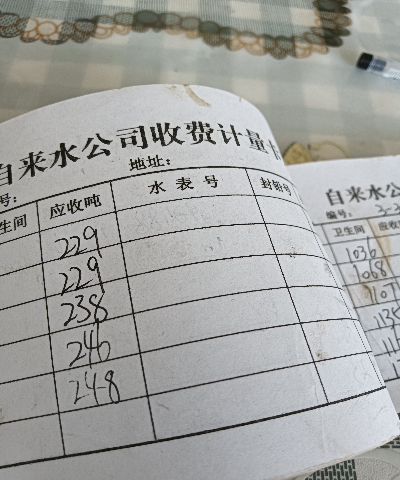 自来水公司收费计量
号: 地址:
生间 应收吨 水表号 封铅号
229
229
238
246
248
自来水公
编号: 3-3
卫生间 应收
1036
1068
1107